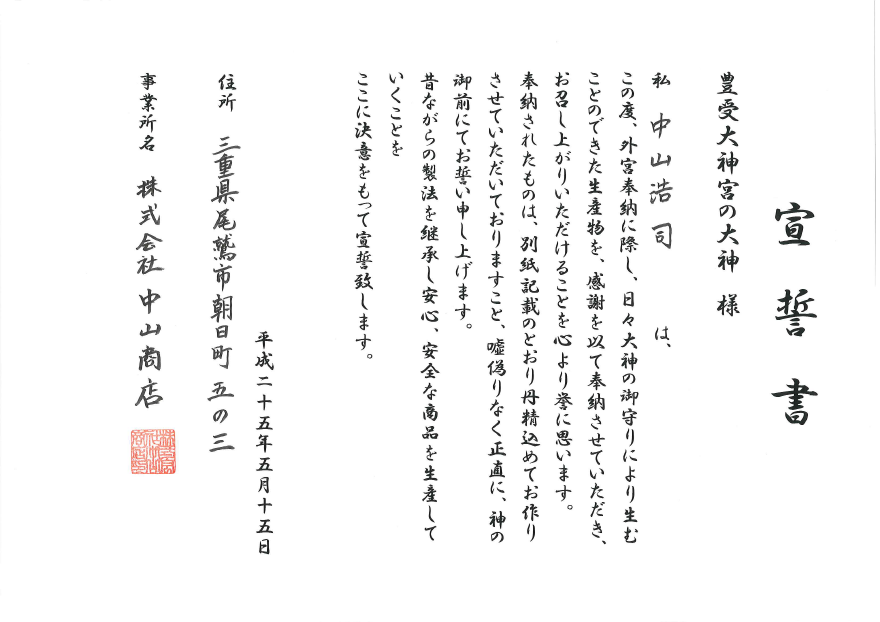 宣誓書
豊受大神宮の大神 様
私 中山浩司 は、
この度、外宮奉納に際し、日々大神の御守りにより生む
ことのできた生産物を、感謝を以て奉納させていただき、
お召し上がりいただけることを心より誉に思います。
奉納されたものは、別紙記載のとおり丹精込めてお作り
させていただいておりますこと、嘘偽りなく正直に、神の
御前にてお誓い申し上げます。
昔ながらの製法を継承し安心、安全な商品を生産して
いくことを
ここに決意をもって宣誓致します。
平成二十五年五月十五日
住所 三重県尾鷲市朝日町 五の三
事業所名 株式会社 中山商店